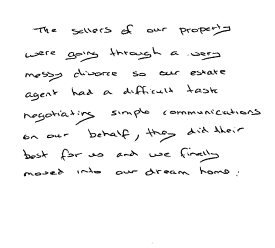 The sellers of our property
were going through a very
messy divorce so our estate
agent had a difficult task
negotiating simple communications
on our behalf, they did their
best for us and we finally
moved into our dream home.